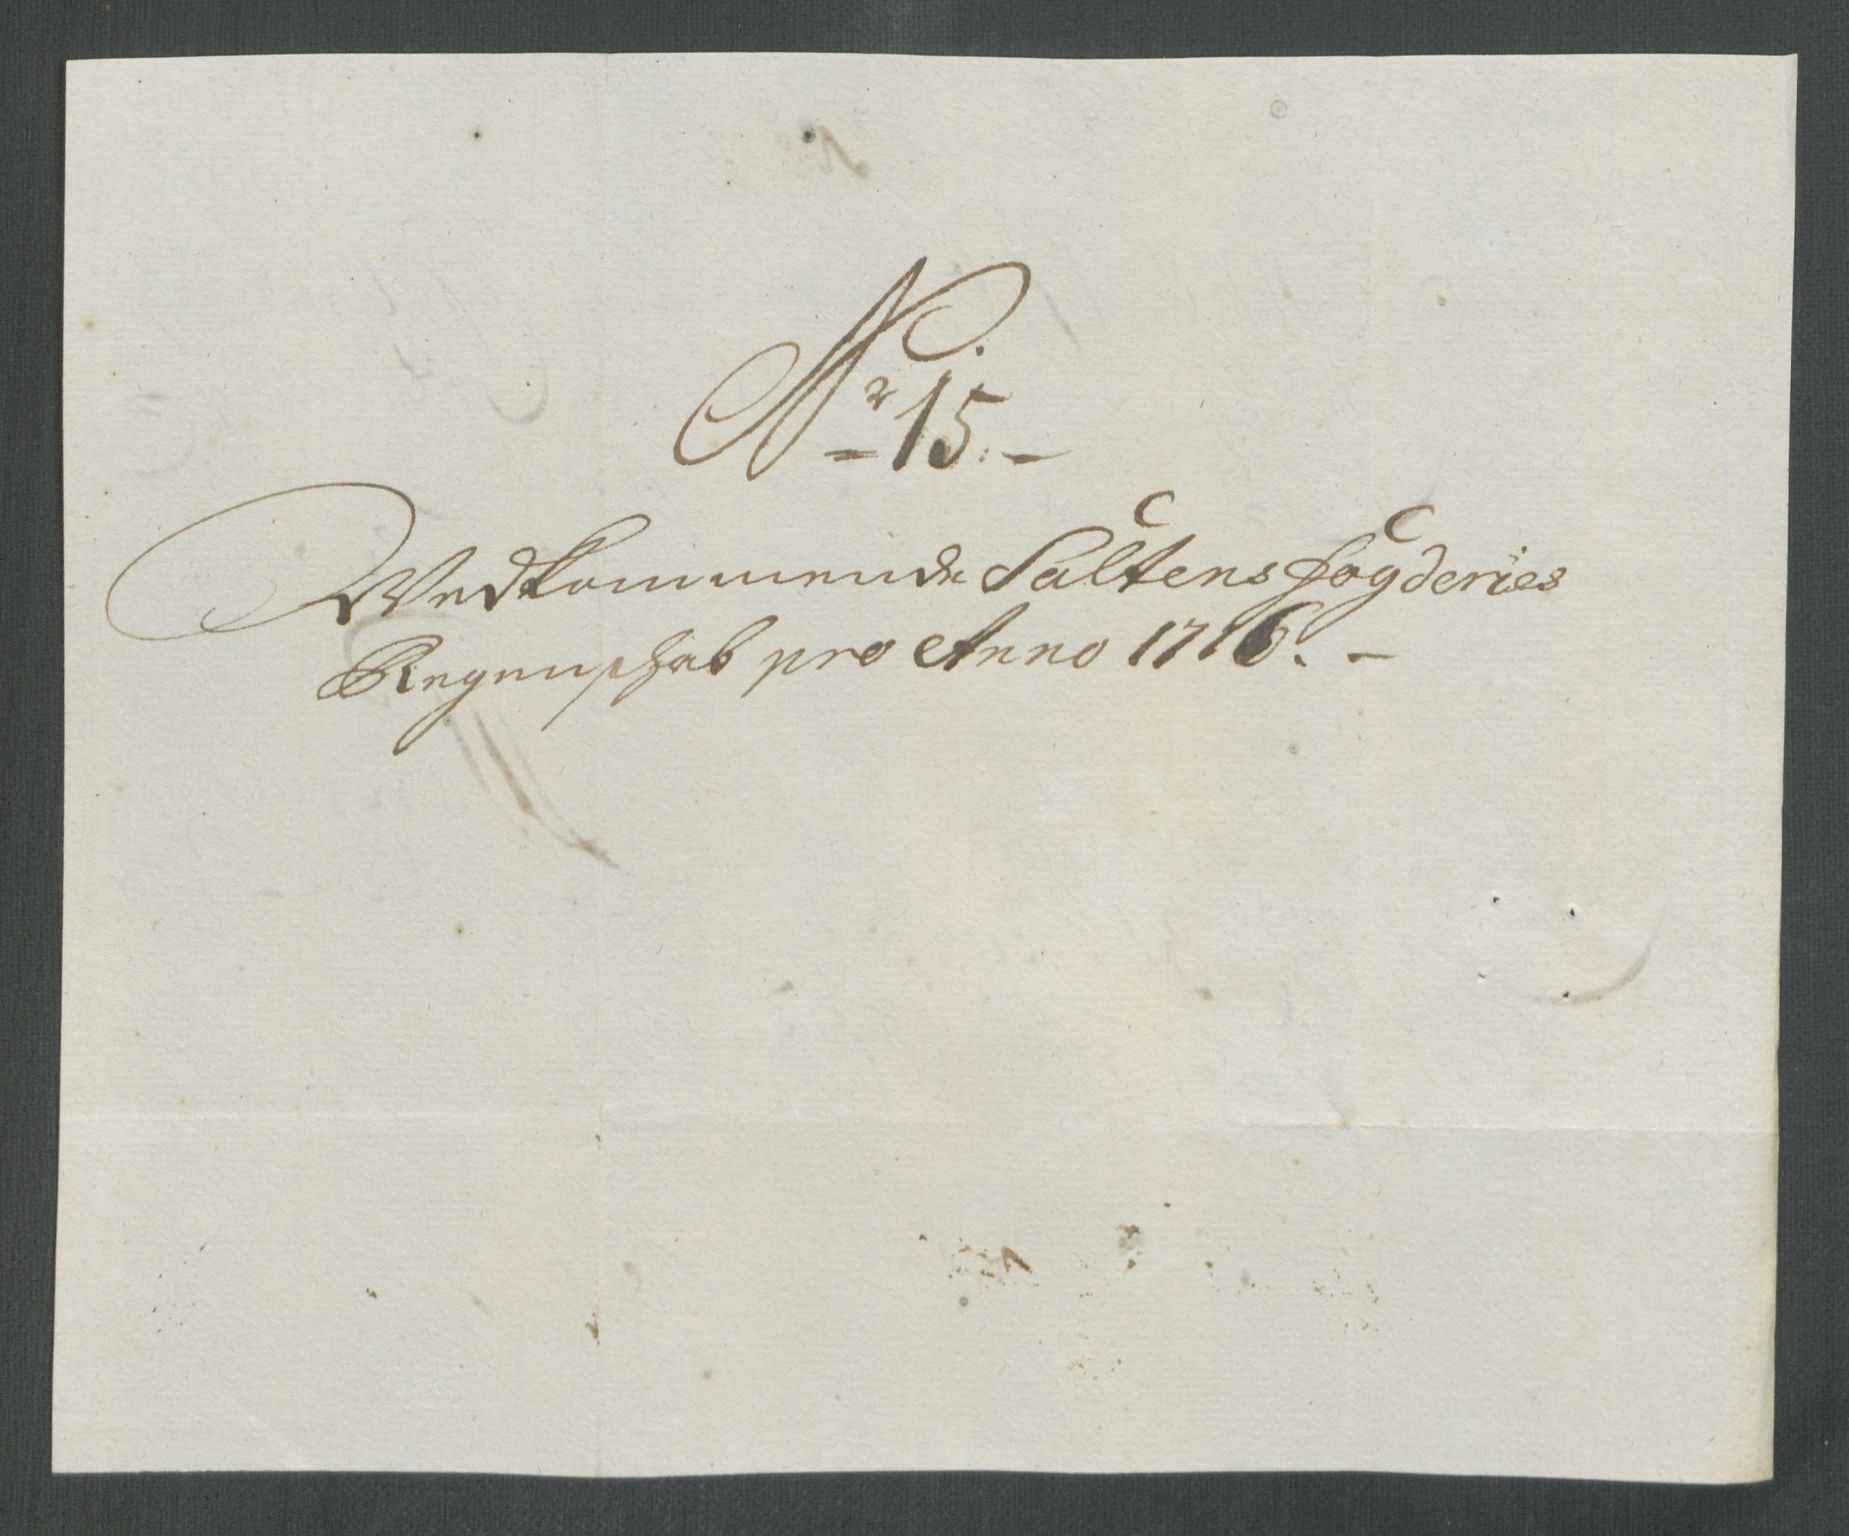 Nr 15.
Wedkommende Saltens fogderies
Regenschab pro Anno 1716.